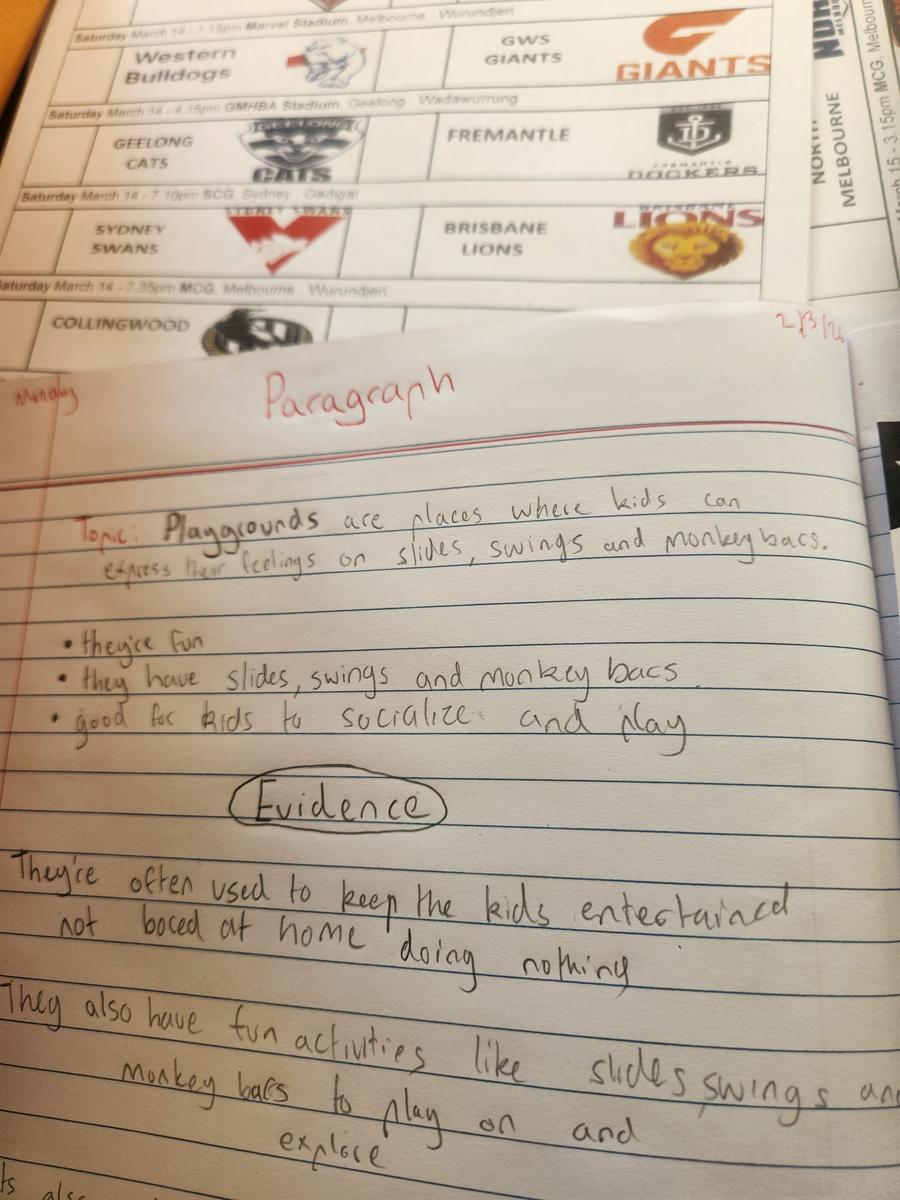 Saturday March 14 - 1.15pm Marvel Stadium, Melbourne . Wurundjeri
Western
Bulldogs
GWS
GIANTS
GIANTS
Saturday March 14 - 4.15pm GMHBA Stadium, Geelong . Wadawurrung
GEELONG
CATS
GEELONG
CATS
FREMANTLE
FREMANTLE
DOCKERS
Saturday March 14 - 7.10pm SCG, Sydney . Gadigal
SYDNEY
SWANS
SYDNEY SWANS
BRISBANE
LIONS
BRISBANE
LIONS
Saturday March 14 - 7.35pm MCG, Melbourne . Wurundjeri
COLLINGWOOD
NORTH
MELBOURNE
March 15 - 3.15pm MCG, Melbourn
Monday
2/3/26
Paragraph
Topic: Playgrounds are places where kids can
express their feelings on slides, swings and monkey bars.
• they're fun
• they have slides, swings and monkey bars.
• good for kids to socialize and play
Evidence
They're often used to keep the kids entertained
not bored at home doing nothing
They also have fun activities like slides, swings an
monkey bars to play on and
explore